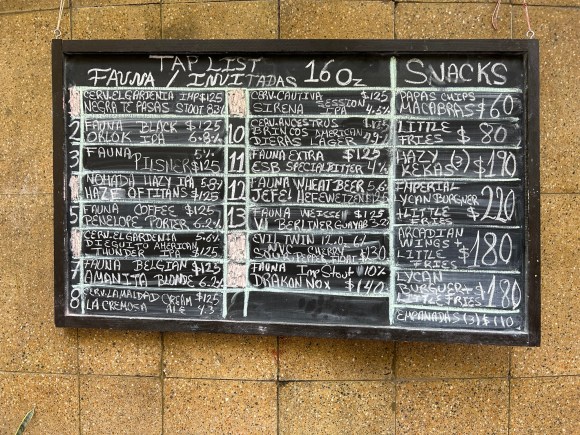 TAP LIST
FAUNA / INVITADAS 16 Oz
CERV.EL GARDENIA IMP $125
NEGRA TE PASAS STOUT 8%
2 FAUNA BLACK $125
ORLOK IPA 6.8%
3 FAUNA 5%
PILSNER $125
NOMADA HAZY IPA 5.8%
HAZE OF TITANS $125
5 FAUNA COFFEE $125
PENELOPE PORTER 6.2%
CERV.EL GARDENIA 5.6%
DIEGUITO AMERICAN
THUNDER IPA $125
7 FAUNA BELGIAN $125
AMANITA BLONDE 6.2%
8 CERV.LA MALDAD CREAM $125
LA CREMOSA ALE 4.3
CERV.CAUTIVA $125
SIRENA SESSION IPA 4.5%
10 CERV.ANCESTRUS
BRINCOS AMERICAN
DIERAS LAGER
11 FAUNA EXTRA $125
ESB SPECIAL BITTER 4%
12 FAUNA WHEAT BEER 5.6
JEFE! HEFEWEIZEN
13 FAUNA WEISSE $125
BERLINER GUAYABA 3.2%
EVIL TWIN 12 Oz
CHERRY
$130
FAUNA Imp Stout 10%
DRAKON NOX $140
SNACKS
PAPAS CHIPS
MACABRAS $60
LITTLE
FRIES $80
HAZY (3)
KEKAS $190
IMPERIAL
LYCAN BURGUER
+ LITTLE
FRIES $220
ARCADIAN
WINGS +
LITTLE
FRIES $180
LYCAN
BURGUER +
LITTLE FRIES $180
EMPANADAS (3) $110